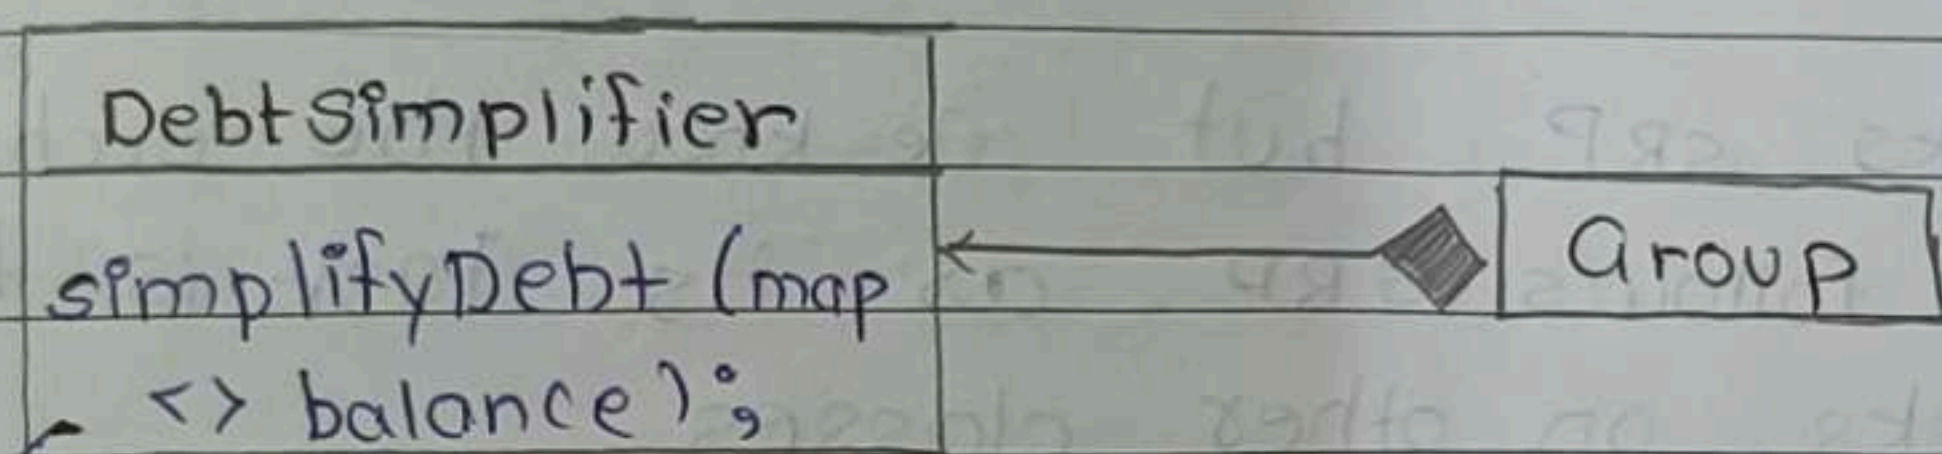 DebtSimplifier
simplifyDebt (map
<> balance);
Group